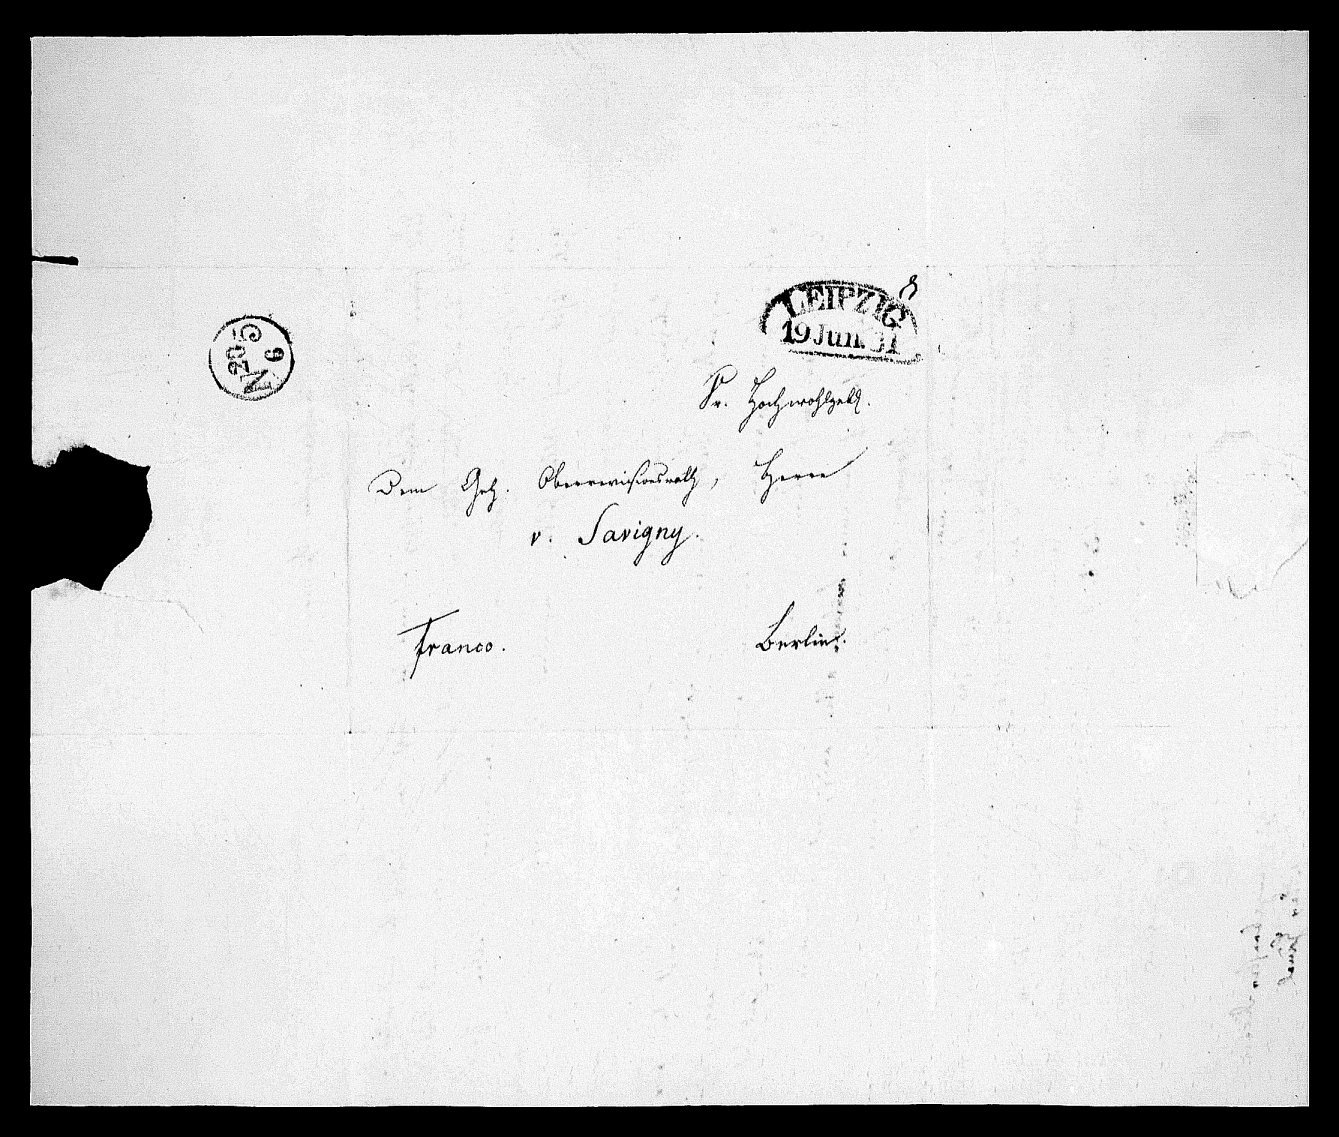 LEIPZIG
19 Jun. 31
N 20 5
6
Sr. Hochwohlgeb.
Dem Geh. Oberrevisionsrath, Herrn
v. Savigny.
Franco.
Berlin.